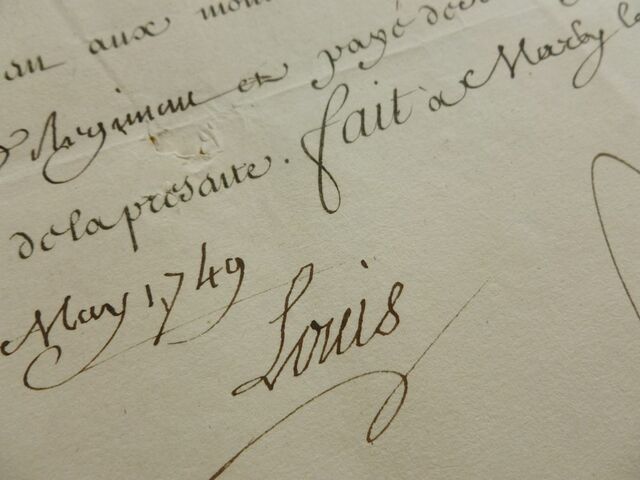 an aux mou
Regiman et payé de
de la presante. fait à Marly le
May 1749
Louis